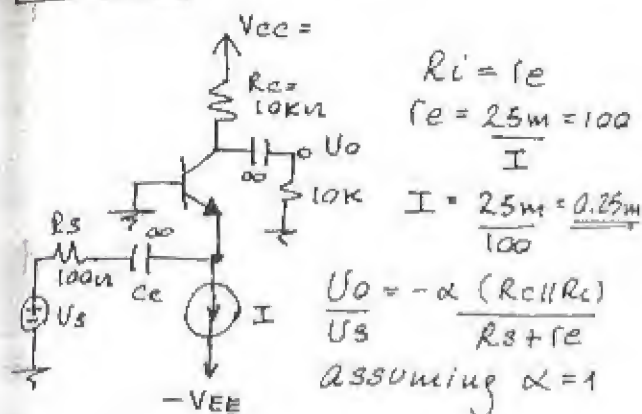 Vcc =
Rc=
10KΩ
∞
Uo
10K
Rs
100Ω
∞
Cc
Us
I
-VEE
Ri = re
re = 25m = 100
I
I = 25m = 0.25m
100
Uo = -α (Rc||Rc)
Us Rs+re
assuming α = 1